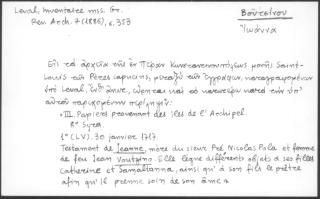 Leval, Inventaire mss. Gr.
Rev. Arch. 7 (1886), σ. 353
Βουτσίνου
Ἰωάννα
Εἰς τὰ ἀρχεῖα τῆς ἐν Πέραν Κωνσταντινουπόλεως μονῆς Saint-
Louis τῶν Pères capucins, μεταξὺ τῶν ἐγγράφων, καταγραφομένων
ὑπὸ Leval, ἔνθ' ἄνω, καὶ τὸ κατωτέρω κατὰ τὴν ὑπ'
αὐτοῦ περίληψιν:
« III. Papiers provenant des îles de l'Archipel.
8° Syra.
1° (LV). 30 janvier 1717.
Testament de Jeanne, mère du sieur Pré Nicolas Pola et femme
de feu Jean Voutzino. Elle lègue différents objets à ses filles
Catherine et Samaritanna, ainsi qu'à son fils le prêtre
afin qu'il prenne soin de son âme »